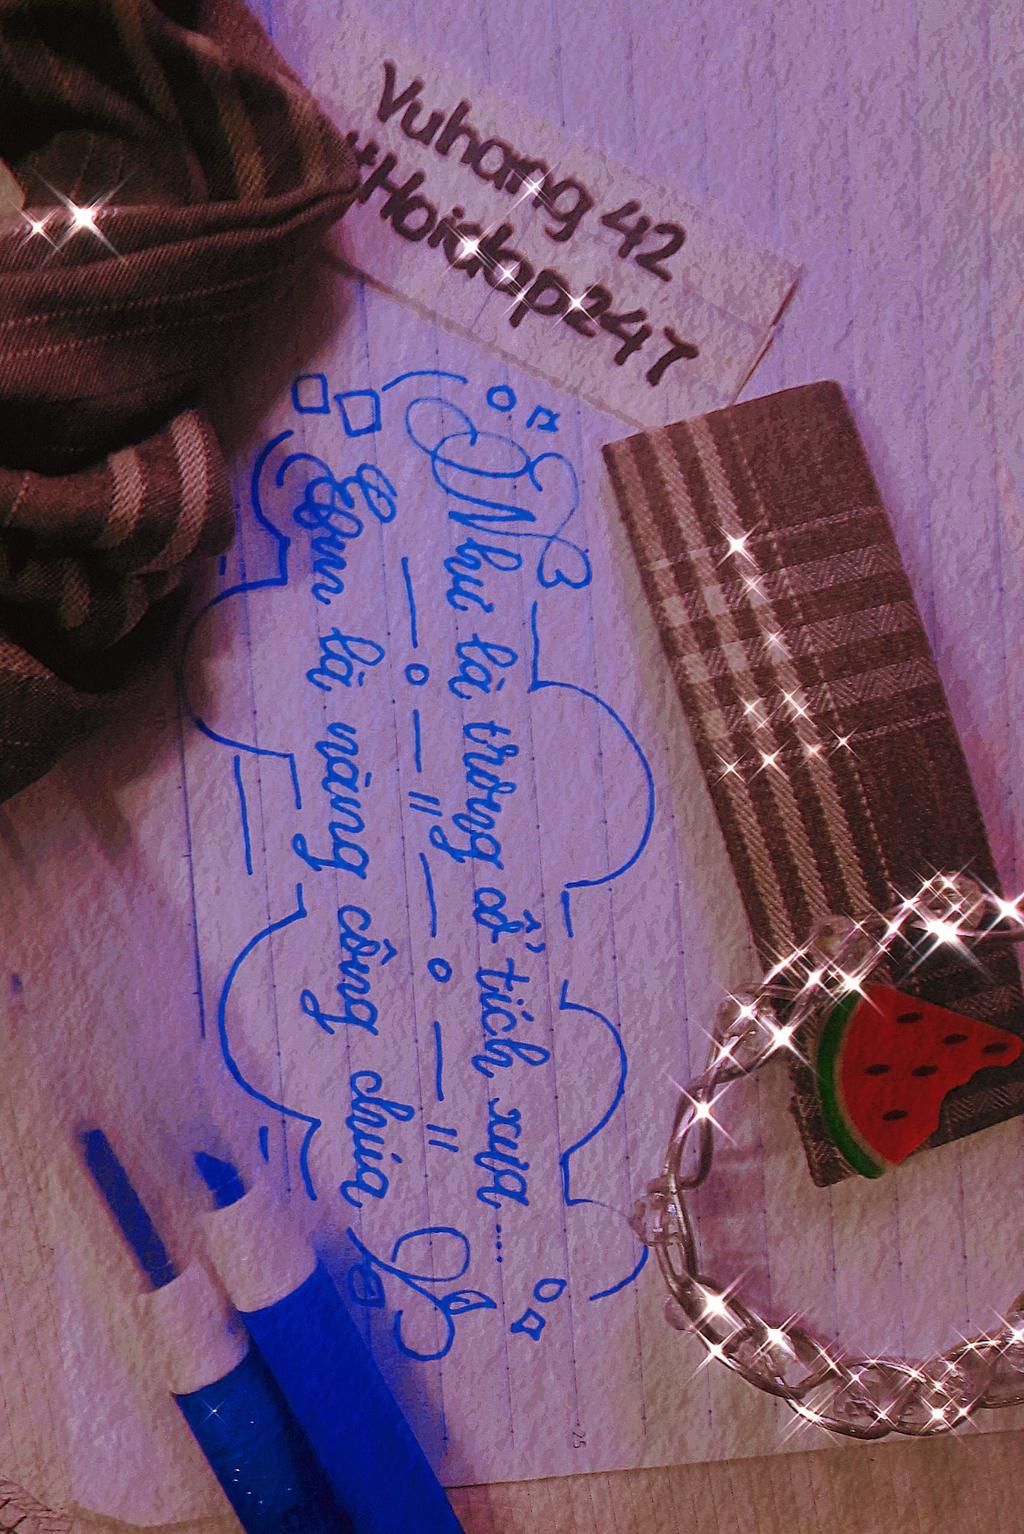 Vuhang 42
#Hoidap247
Như là trong cổ tích xưa....
Em là nàng công chúa
25